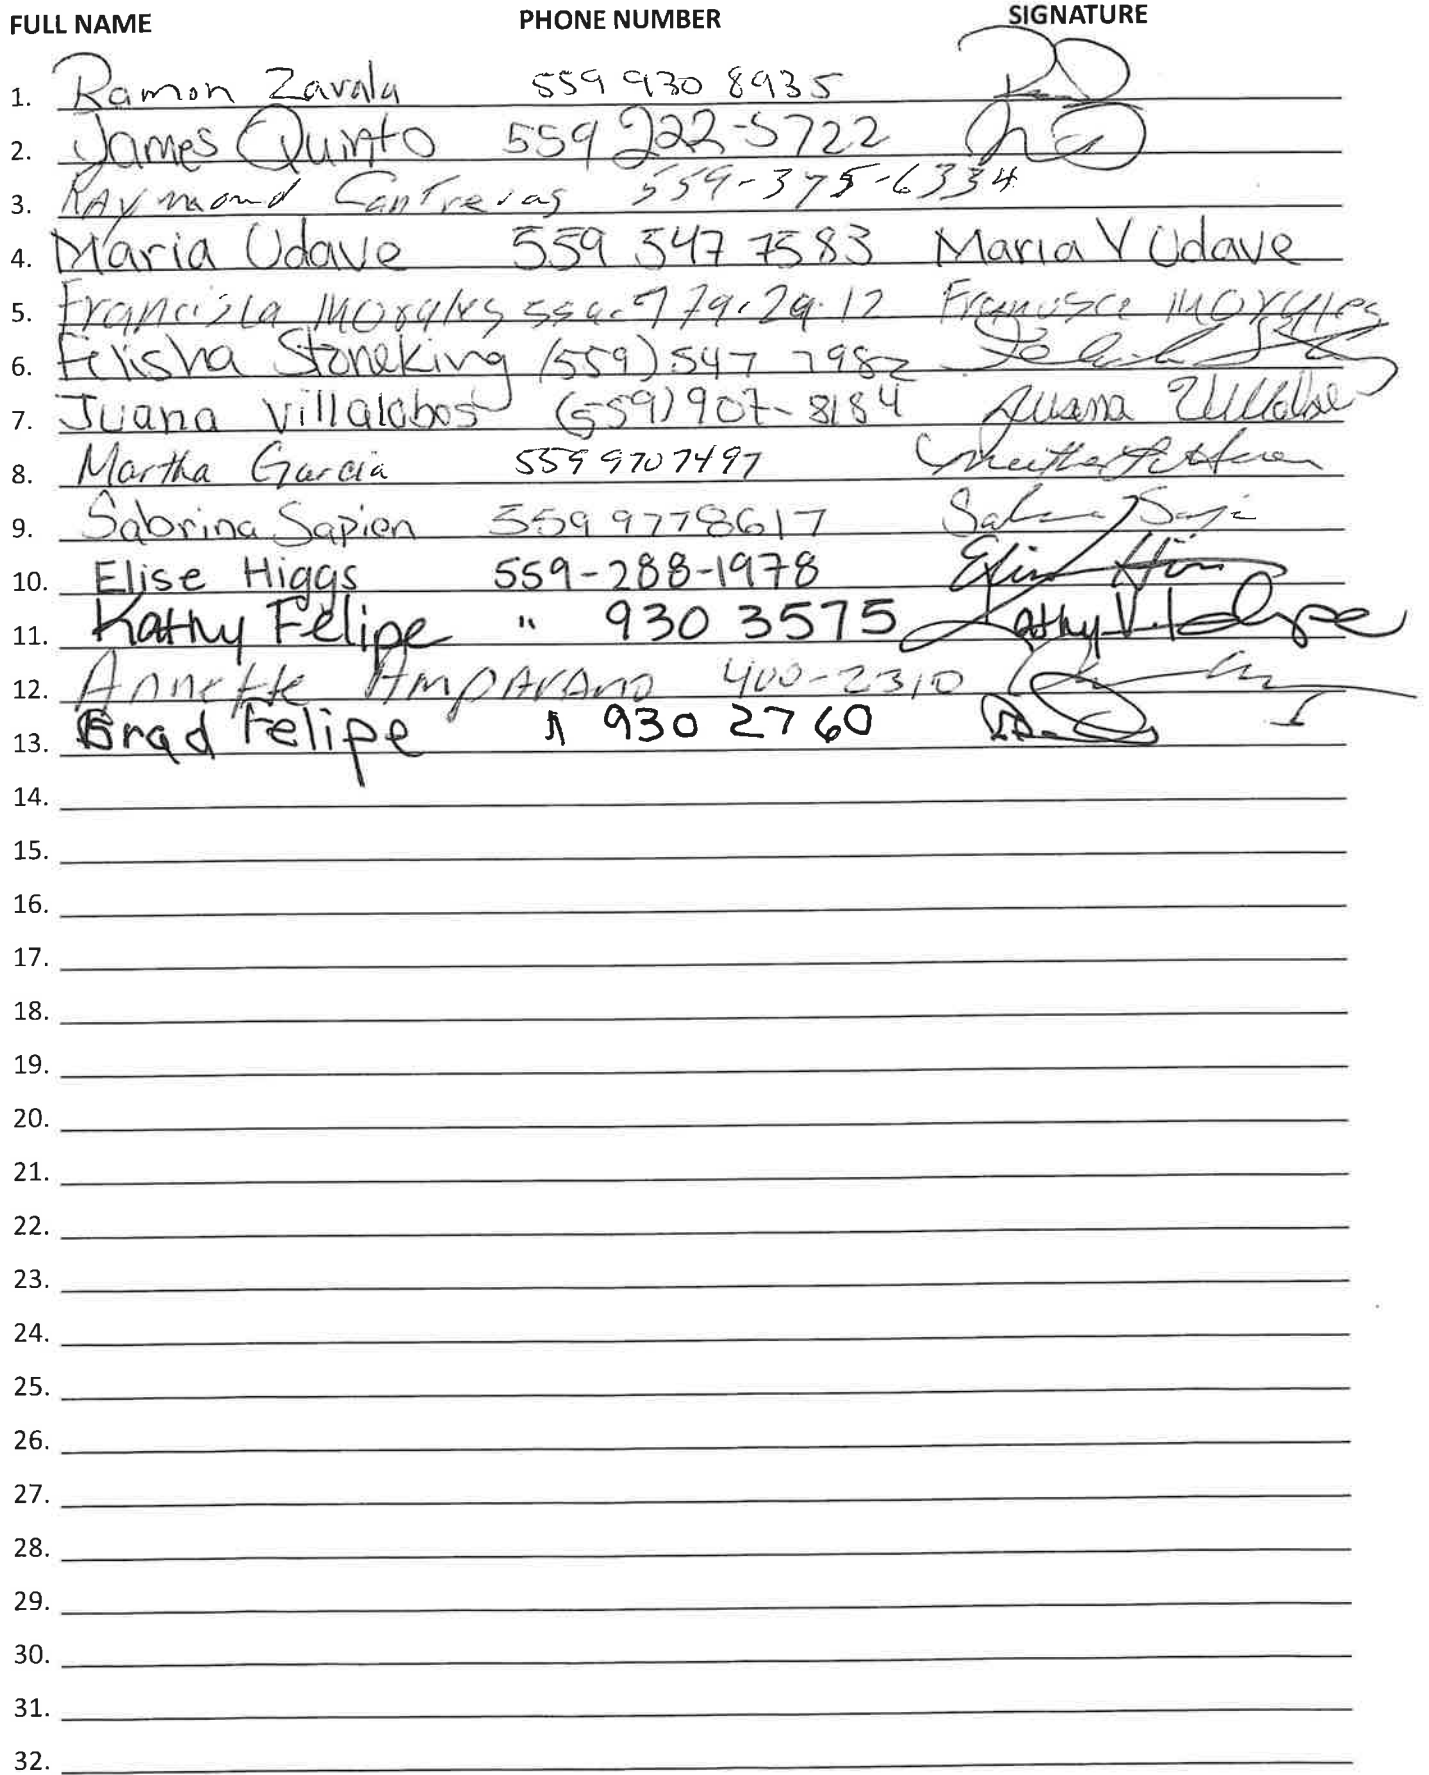 FULL NAME PHONE NUMBER SIGNATURE
1. Ramon Zavala 559 930 8935
2. James Quinto 559 222-5722
3. RAymond Contreras 559-375-6334
4. Maria Udave 559 347 7583 Maria Y Udave
5. Francisca Morales 559-779-29-12 Francisca Morales
6. Felisha Stoneking (559) 547 7982
7. Juana Villalobos (559) 907-8184 Juana
8. Martha Garcia 559 9707497
9. Sabrina Sapien 559 9778617
10. Elise Higgs 559-288-1978
11. Kathy Felipe " 930 3575 Kathy V. Felipe
12. Annette AmpARANO 400-2310
13. Brad Felipe 930 2760
14.
15.
16.
17.
18.
19.
20.
21.
22.
23.
24.
25.
26.
27.
28.
29.
30.
31.
32.